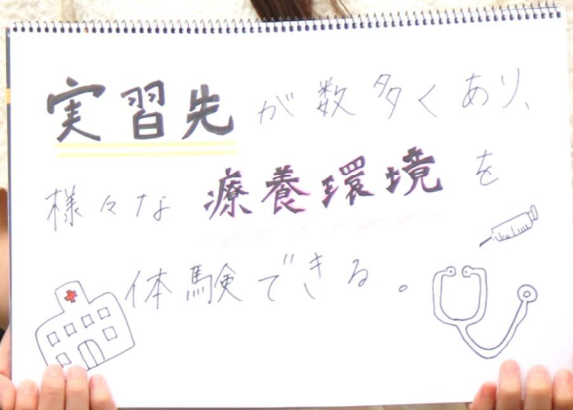 実習先が数多くあり、
様々な療養環境を
体験できる。